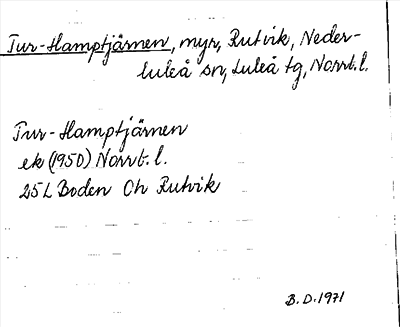 Tur-Hamptjärnen, myr, Rutvik, Neder-
luleå sn, Luleå tg, Norrt.l.
Tur-Hamptjärnen
ek (1950) Norrt. l.
25L Boden Ch Rutvik
B.D. 1971